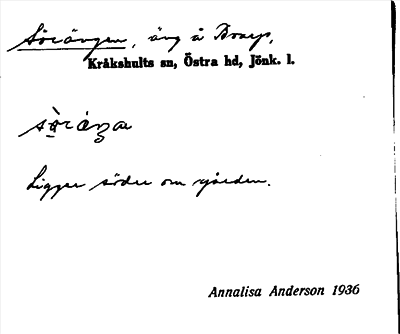 Sörängen, äng å Braarp,
Kråkshults sn, Östra hd, Jönk. l.
Ligger söder om gården.
Annalisa Anderson 1936